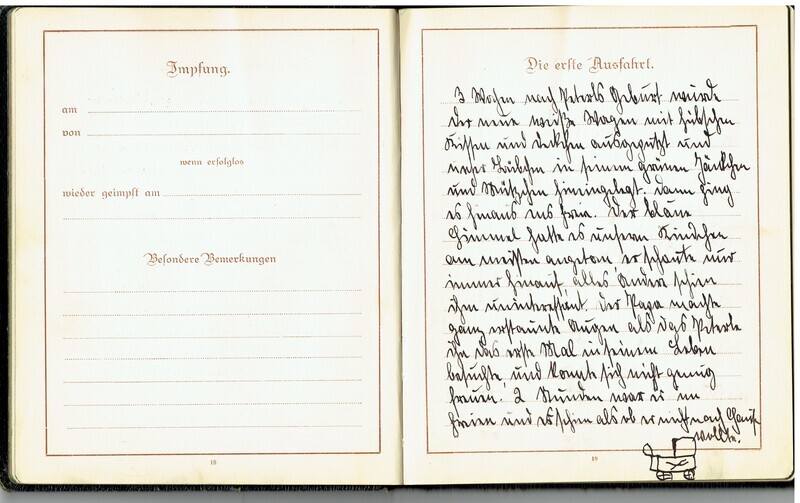 Impfung.
am
von
wenn erfolglos
wieder geimpft am
Besondere Bemerkungen
18
Die erste Ausfahrt.
3 Wochen nach Peterls Geburt wurde
der neue weiße Wagen mit hübschen
Kissen und Deckchen ausgeputzt und
unser Bübchen in seinem grünen Jäckchen
und Mützchen hineingelegt. dann ging
es hinaus ins freie. Der blaue
Himmel hatte es unserm Kindchen
am meisten angetan er schaute nur
immer hinauf, alles andere schien
ihm uninteressant. Der Papa machte
ganz erstaunte Augen als das Peterle
ihn das erste Mal in seinem Leben
besuchte, und konnte sich nicht genug
freuen. 2 Stunden war er im
freien und es schien als ob er nicht nach Hause
wollte.
19